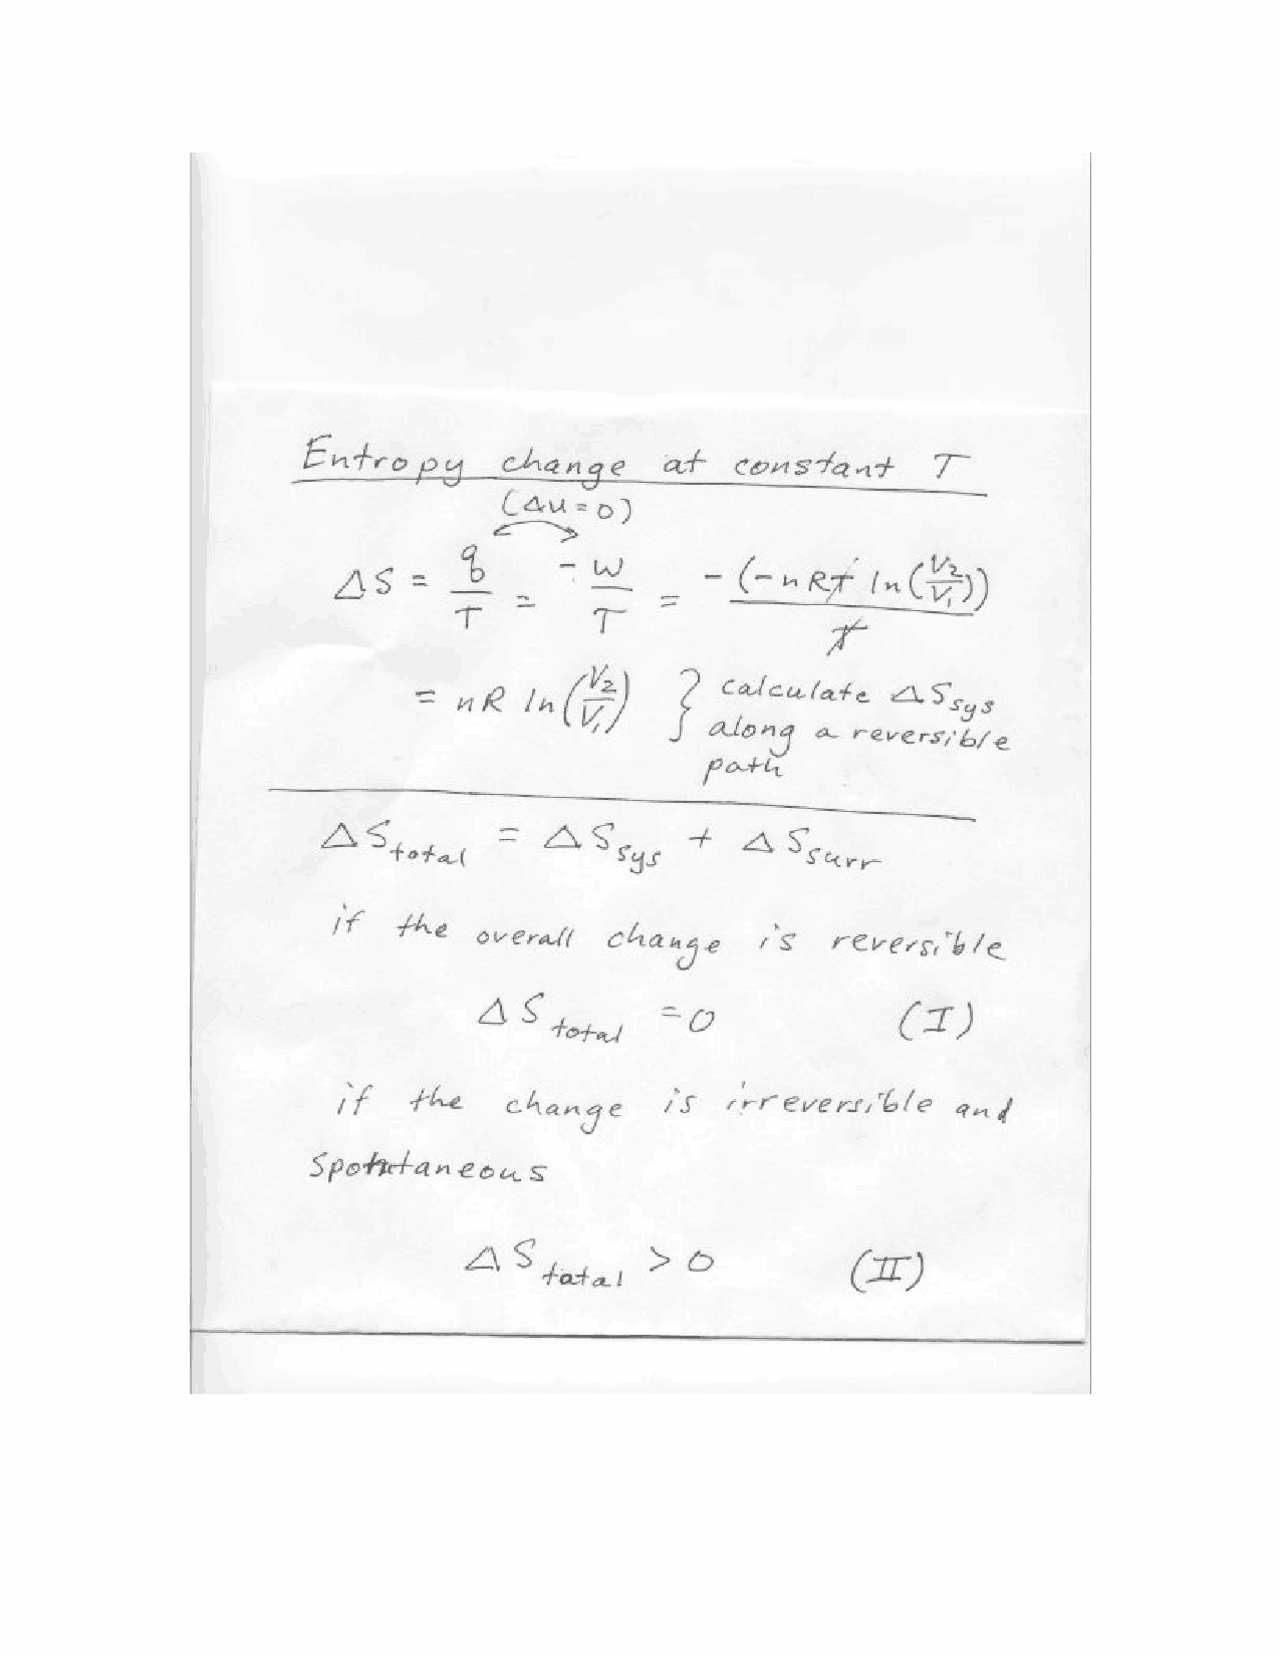 Entropy change at constant T
(Δu = 0)
ΔS = q/T = -w/T = -(-nRT ln(V₂/V₁))/T
= nR ln(V₂/V₁) } calculate ΔS_sys
along a reversible
path
ΔS_total = ΔS_sys + ΔS_surr
if the overall change is reversible
ΔS_total = 0 (I)
if the change is irreversible and
spontaneous
ΔS_total > 0 (II)